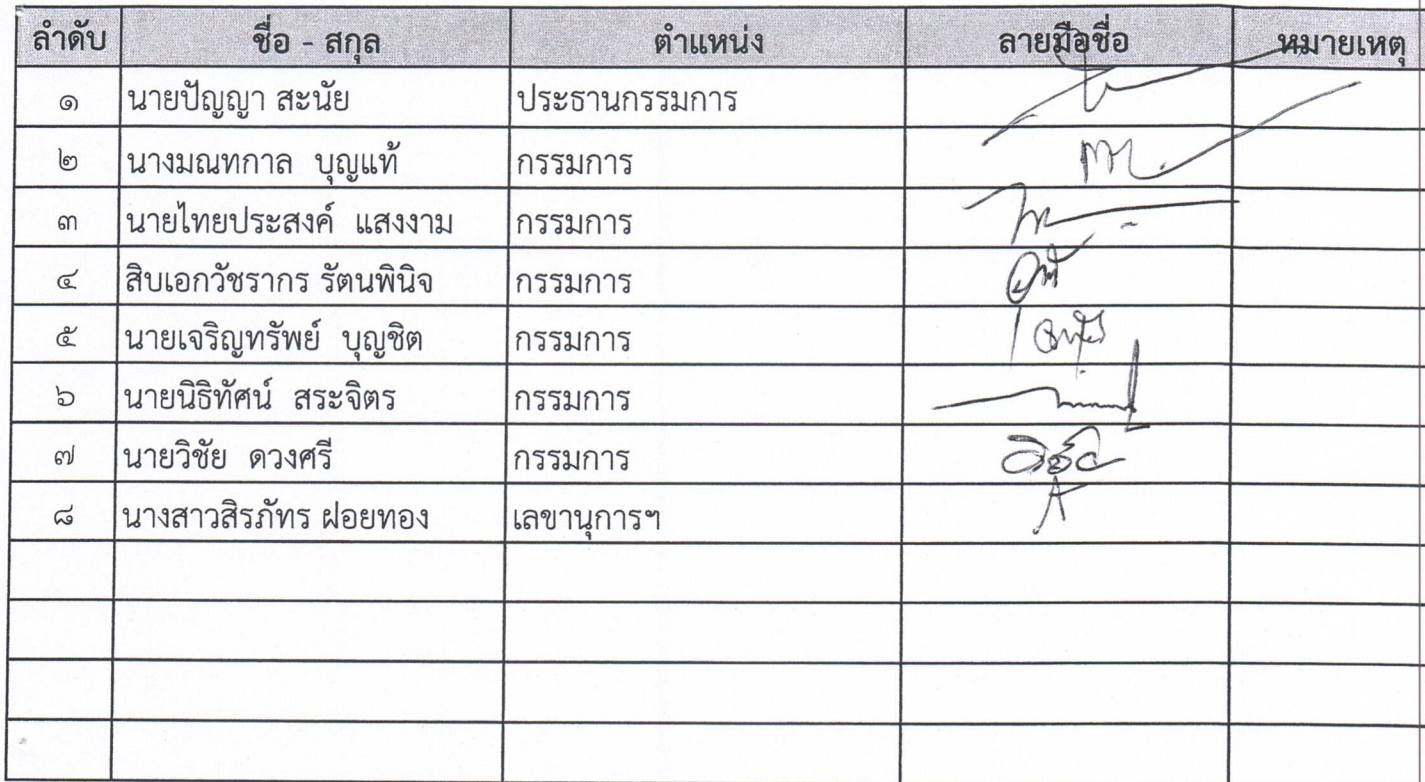 ลำดับ ชื่อ - สกุล ตำแหน่ง ลายมือชื่อ หมายเหตุ
๑ นายปัญญา สะนัย ประธานกรรมการ
๒ นางมณฑกาล บุญแท้ กรรมการ
๓ นายไทยประสงค์ แสงงาม กรรมการ
๔ สิบเอกวัชรากร รัตนพินิจ กรรมการ
๕ นายเจริญทรัพย์ บุญชิต กรรมการ
๖ นายนิธิทัศน์ สระจิตร กรรมการ
๗ นายวิชัย ดวงศรี กรรมการ
๘ นางสาวสิรภัทร ฝอยทอง เลขานุการฯ